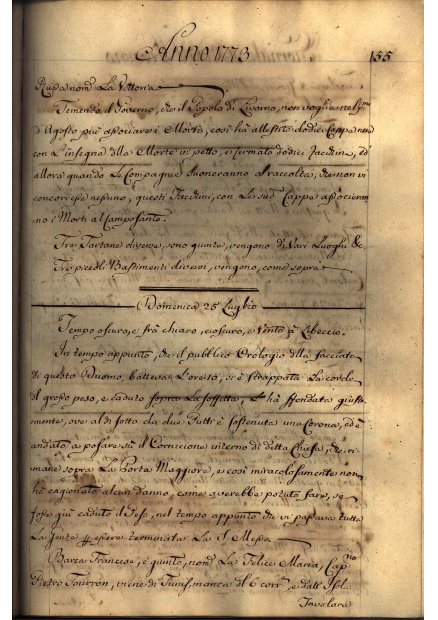 Anno 1773
155
nom.ta La Vittoria
Temendo il Governo, che il Popolo di Livorno, non voglia
d'Agosto più associare i Morti, così hà allestito dodici Cappe
con L'insegna della Morte in petto, e fermato dodici Facchini, ed
allora quando Le Compagnie suoneranno al raccolta, che non vi
concorresse nessuno, questi Facchini, con Le sud.e Cappe associeran
no i Morti al Camposanto.
Tre Tartane diverse, sono giunte, vengono di Vari Luoghi &c.
Tre piccoli Bastimenti diversi, vengono, come sopra
Domenica 25 Luglio
Tempo oscuro, e frà chiaro, e oscuro, e Vento à Libeccio.
In tempo appunto, che il pubblico Orologio della facciata
di questo Duomo, batteva L'ore, si è strappata La corda
del grosso peso, e caduto sopra La soffitta, L'hà sfondata giusta
mente, ove al di sotto da due Putti è sostenuta una Corona, ed è
andato a posare sù il Cornicione interno di detta Chiesa, che ri
mane sopra La Porta Maggiore, e così miracolosamente non
hà cagionato alcun danno, come averebbe potuto fare, se
fosse quì caduto il Peso, nel tempo appunto che vi passava tutta
La Gente essere terminata La S. Messa
Barca Francese, è giunta, nom.ta La Felice Maria, Cap.no
Pietro Tourron, viene di Tunis, manca dl 6 corr.te, e dall'Isola
Tavolara